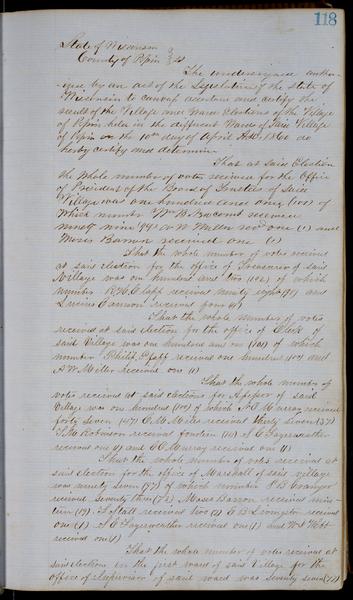 118
State of Wisconsin
County of Pepin } ss
The undersigned autho-
rize by an act of the Legislature of the State of
Wisconsin to canvass ascertain and certify the
result of the Village and Ward Elections of the Village
of Pepin held in the different Wards of said Village
of Pepin on the 10th day of April A.D. 1860 do
herby certify and determine
That at said Election
the whole number of votes received for the Office
of President of the Board of Trustees of said
Village was one hundred and one (101) of
which number Wm B Newcomb received
ninety nine (99) A W Miller recd one (1) and
Moses Barron received one (1)
That the whole number of votes received
at said election for the office of Treasurer of said
Village was one hundred and two (102) of which
number Clapp received ninety eight (98) and
Lucius Cannon received four (4)
That the whole number of votes
received at said election for the office of Clerk of
said Village was one hundred and one (101) of which
number Philip Pfaff received one hundred (100) and
A W Miller received one (1)
That the whole number of
votes received at said elections for Assessor of said
Village was one hundred of which Murray received
forty seven (47) C. M. Miles received thirty seven (37)
Robinson received fourteen (14) S C Fayerweather
received one (1) and Murray received one (1)
That the whole number of votes received at
said election for the office of Marshall of said village
was ninety seven (97) of which number
received seventy three (73) Moses Barron received nine-
teen (19) received two (2) Livingston received
one (1) S C Fayerweather received one (1) and
received one (1)
That the whole number of votes received at
said election in the first ward of said Village for the
office of Supervisor of said ward was seventy seven (77)